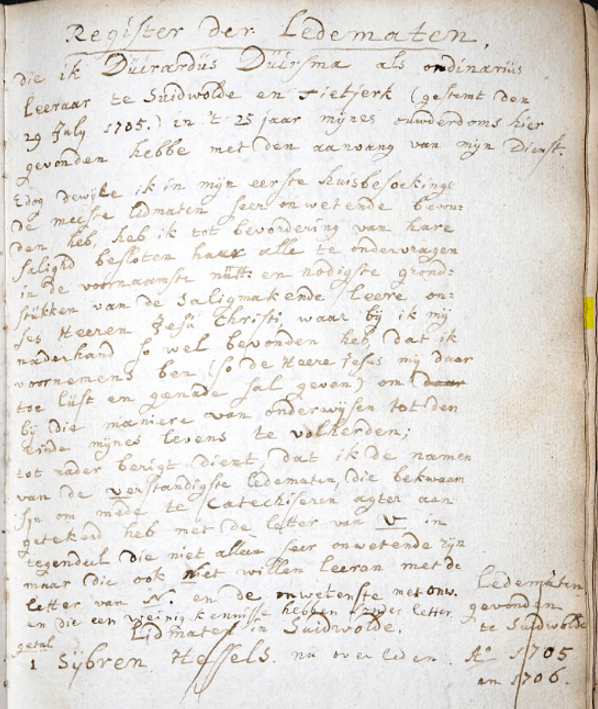 Register der Ledematen,
die ik Duirardus Duirsma als ordinariüs
Leeraar te Suidwolde en Tietjerk (gestemt den
29 July 1705.) in 't 25 jaar mijnes ouwderdoms hier
gevonden hebbe met den aanvang van mijn Dienst.
Edog dewijle ik in mijn eerste huisbesoekinge
de meeste lidmaten seer onwetende bevon:
den heb, heb ik tot bevordering van hare
salighd besloten haar alle te ondervragen
in de voornaamste nutt: en nodigste grond:
stükken van de Saligmakende Leere on:
ses Heeren Jesü Christi, waar bij ik mij
naderhand so wel bevonden heb, dat ik
voornemens ben (so de Heere Jesus mij daar
toe lüst en genade sal geven) om daar
bij die maniere van onderwijsen tot den
einde mijnes levens te volherden;
tot nader berigt dient dat ik de namen
van de verstandigste ledematen, die bekwaam
sijn om mede te Catechiseren agter aan
getekend heb met de letter van V in
tegendeel die niet allein seer onwetende zijn
maar die ook Niet willen leeren met de
letter van N. en de onwetenste met onw.
en die een weinig kennisse hebben sonder letter
Lidmaten in Suidwolde.
getal
1 Sijbren Hessels. nu overleden.
Ledematen
gevonden
te Suidwolde
Ao 1705
en 1706.